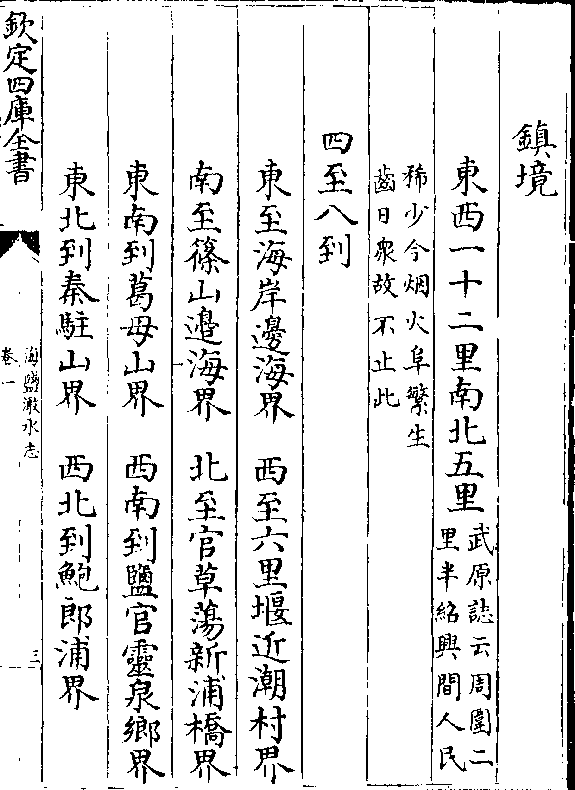 鎮境
東西一十二里南北五里武原誌云周圍二
里半紹興間人民
稀少今烟火阜繁生
齒日衆故不止此
四至八到
東至海岸邊海界　西至六里堰近潮村界
南至篠山邉海界　北至官草蕩新浦橋界
東南到葛母山界　西南到鹽官靈泉鄉界
東北到秦駐山界　西北到鮑郎浦界
欽定四庫全書
海鹽澉水志
卷一
三